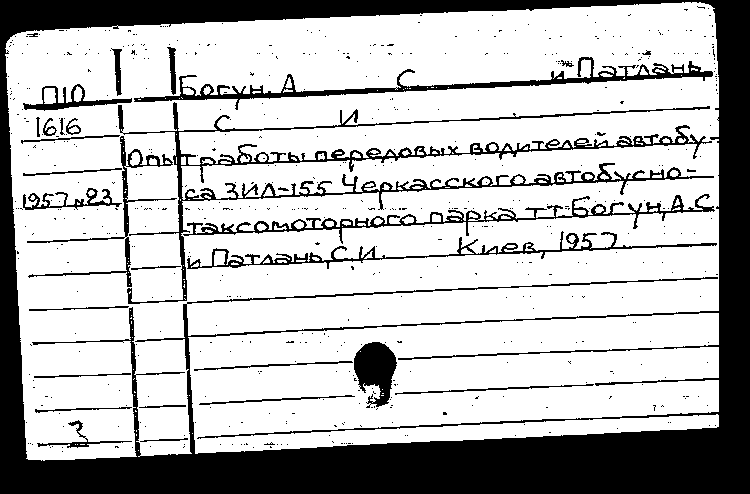 П10 Богун, А С и Патлань,
1616 С И
Опыт работы передовых водителей автобу-
1957 №23. са ЗИЛ-155 Черкасского автобусно-
таксомоторного парка т.т. Богун, А.С.
и Патлань, С.И. Киев, 1957.
3